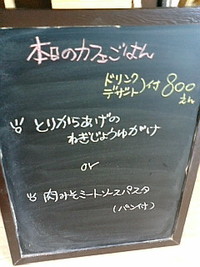 本日のカフェごはん
ドリンク
デザート)付 800
えん
とりからあげの
ねぎじょうゆがけ
or
肉みそミートソースパスタ
(パン付)